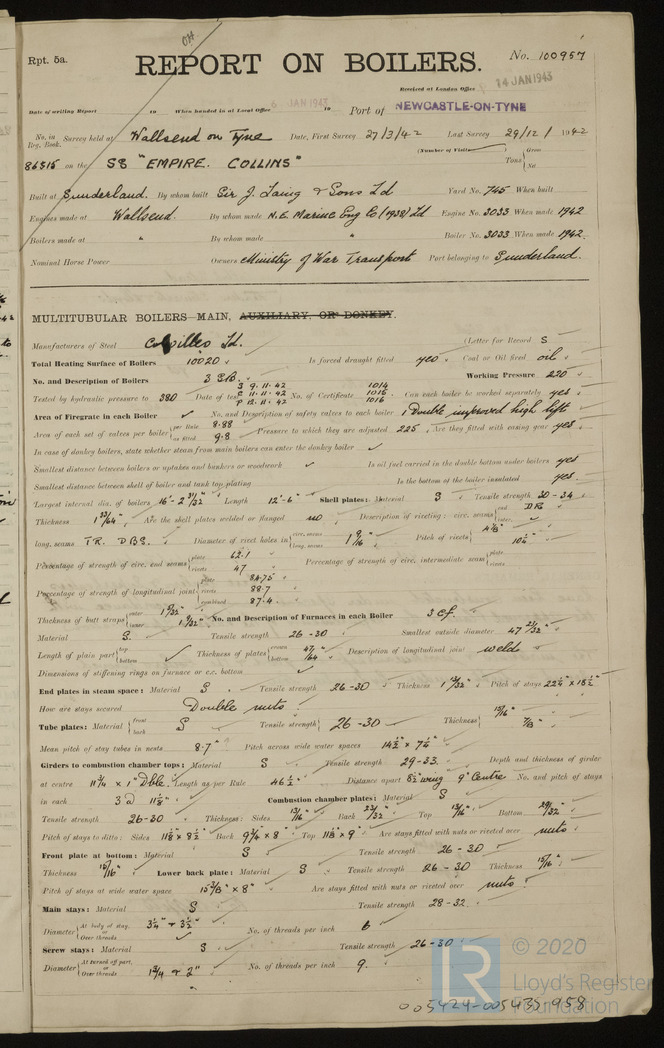 Rpt. 5a.
REPORT ON BOILERS.
No. 100957
Received at London Office 14 JAN 1943
Date of writing Report 19 When handed in at Local Office 6 JAN 1943 19 Port of NEWCASTLE-ON-TYNE
No. in Reg. Book. Survey held at Wallsend on Tyne Date, First Survey 27/3/42 Last Survey 29/12/1942
(Number of Visits)
86515 on the SS "EMPIRE. COLLINS" Tons Gross Net
Built at Sunderland. By whom built Sir J. Laing & Sons Ld Yard No. 745 When built
Engines made at Wallsend. By whom made N.E. Marine Eng Co (1938) Ld Engine No. 3033 When made 1942
Boilers made at " By whom made " Boiler No. 3033 When made 1942
Nominal Horse Power Owners Ministry of War Transport Port belonging to Sunderland.
MULTITUBULAR BOILERS—MAIN, AUXILIARY, OR DONKEY.
Manufacturers of Steel Colvilles Ld. (Letter for Record S
Total Heating Surface of Boilers 10020 Is forced draught fitted yes Coal or Oil fired oil
No. and Description of Boilers 3 S.B. Working Pressure 220
Tested by hydraulic pressure to 380 Date of test S 9.11.42 C 11.11.42 P 12.11.42 No. of Certificate 1014 1015 1016 Can each boiler be worked separately yes
Area of Firegrate in each Boiler No. and Description of safety valves to each boiler 1 Double improved high lift
Area of each set of valves per boiler per Rule 8.88 as fitted 9.8 Pressure to which they are adjusted 225 Are they fitted with easing gear yes
In case of donkey boilers, state whether steam from main boilers can enter the donkey boiler
Smallest distance between boilers or uptakes and bunkers or woodwork Is oil fuel carried in the double bottom under boilers yes
Smallest distance between shell of boiler and tank top plating Is the bottom of the boiler insulated yes
Largest internal dia. of boilers 16'-2 31/32" Length 12'-6" Shell plates: Material S Tensile strength 30-34
Thickness 1 33/64" Are the shell plates welded or flanged no Description of riveting: circ. seams end DR inter.
long. seams T.R. D.B.S. Diameter of rivet holes in circ. seams long. seams 1 9/16" Pitch of rivets 4 1/8" 10 1/2"
Percentage of strength of circ. end seams plate 62.1 rivets 47 Percentage of strength of circ. intermediate seam plate rivets
Percentage of strength of longitudinal joint plate 84.75 rivets 88.7 combined 87.4
Thickness of butt straps outer 1 5/32" inner 1 9/32" No. and Description of Furnaces in each Boiler 3 C.F.
Material S. Tensile strength 26-30 Smallest outside diameter 47 21/32"
Length of plain part top bottom Thickness of plates crown bottom 47/64" Description of longitudinal joint weld
Dimensions of stiffening rings on furnace or c.c. bottom
End plates in steam space: Material S Tensile strength 26-30 Thickness Pitch of stays
How are stays secured Double nuts
Tube plates: Material front back S Tensile strength 26-30 Thickness 15/16" 7/8"
Mean pitch of stay tubes in nests 8.7" Pitch across wide water spaces 14 1/2" x 7 1/4"
Girders to combustion chamber tops: Material S Tensile strength 29-33. Depth and thickness of girder
at centre 11 3/4 x 1" Dble. Length as per Rule 46 1/2" Distance apart 9" Centre No. and pitch of stays
in each 3 @ 11 1/8" Combustion chamber plates: Material S
Tensile strength 26-30 Thickness: Sides 13/16" Back 23/32" Top 13/16" Bottom 29/32"
Pitch of stays to ditto: Sides 11 1/8 x 8 1/2 Back 9 3/4 x 8" Top 11 1/8 x 9" Are stays fitted with nuts or riveted over nuts
Front plate at bottom: Material S Tensile strength 26-30
Thickness 15/16" Lower back plate: Material S Tensile strength 26-30 Thickness 15/16"
Pitch of stays at wide water space 15 3/8" x 8" Are stays fitted with nuts or riveted over nuts.
Main stays: Material S Tensile strength 28-32
Diameter At body of stay, or Over threads 3 1/4" & 3 1/2" No. of threads per inch 6
Screw stays: Material S Tensile strength 26-30
Diameter At turned off part, or Over threads 1 3/4 & 2" No. of threads per inch 9.
© 2020
Lloyd's Register
Foundation
005424-005435-958